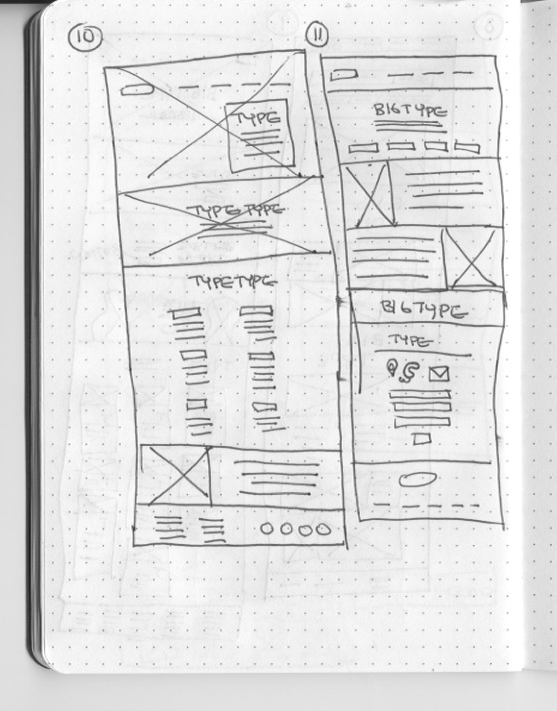 10
TYPE
TYPE TYPE
TYPE TYPE
11
BIG TYPE
BIG TYPE
TYPE